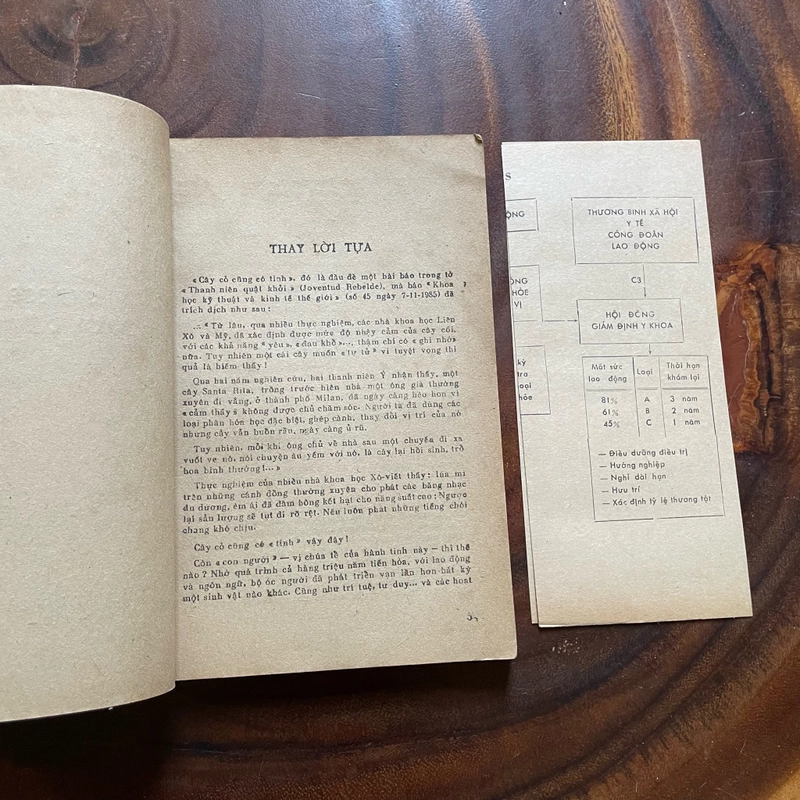 THAY LỜI TỰA
«Cây cỏ cũng có tình», đó là đầu đề một bài báo trong tờ
«Thanh niên quật khởi» (Joventud Rebelde), mà báo «Khoa
học kỹ thuật và kinh tế thế giới» (số 45 ngày 7-11-1985) đã
trích dịch như sau:
...«Từ lâu, qua nhiều thực nghiệm, các nhà khoa học Liên
Xô và Mỹ, đã xác định được mức độ nhạy cảm của cây cối,
với các khả năng «yêu», «đau khổ»..., thậm chí có «ghi nhớ»
nữa. Tuy nhiên một cái cây muốn «tự tử» vì tuyệt vọng thì
quả là hiếm thấy!
Qua hai năm nghiên cứu, hai thanh niên Ý nhận thấy, một
cây Santa Rita, trồng trước hiên nhà một ông già thường
xuyên đi vắng, ở thành phố Milan, đã ngày càng héo hon vì
«cảm thấy» không được chăm sóc. Người ta đã dùng các
loại phân hóa học đặc biệt, ghép cành, thay đổi vị trí của nó
nhưng cây vẫn buồn rầu, ngày càng ủ rũ.
Tuy nhiên, mỗi khi ông chủ về nhà sau một chuyến đi xa
vuốt ve nó, nói chuyện âu yếm với nó, là cây lại hồi sinh, trổ
hoa bình thường!...»
Thực nghiệm của nhiều nhà khoa học Xô-viết thấy: lúa mì
trên những cánh đồng thường xuyên cho phát các băng nhạc
du dương, êm ái đã đâm bông kết hạt cho năng suất cao; Ngược
lại sản lượng sẽ tụt đi rõ rệt. Nếu luôn phát những tiếng chói
chang khó chịu.
Cây cỏ cũng có «tình» vậy đấy!
Còn «con người» — vị chúa tể của hành tinh này — thì thế
nào? Nhờ quá trình cả hàng triệu năm tiến hóa, với lao động
và ngôn ngữ, bộ óc người đã phát triển vạn lần hơn bất kỳ
một sinh vật nào khác. Cũng như trí tuệ, tư duy... và các hoạt
S
ỘNG
ÔNG
KHỎE
VỊ
kỳ
tra
loại
hỏe
THƯƠNG BINH XÃ HỘI
Y TẾ
CÔNG ĐOÀN
LAO ĐỘNG
C3
HỘI ĐỒNG
GIÁM ĐỊNH Y KHOA
Mất sức lao động | Loại | Thời hạn khám lại
81% A 3 năm
61% B 2 năm
45% C 1 năm
— Điều dưỡng điều trị
— Hướng nghiệp
— Nghỉ dài hạn
— Hưu trí
— Xác định tỷ lệ thương tật